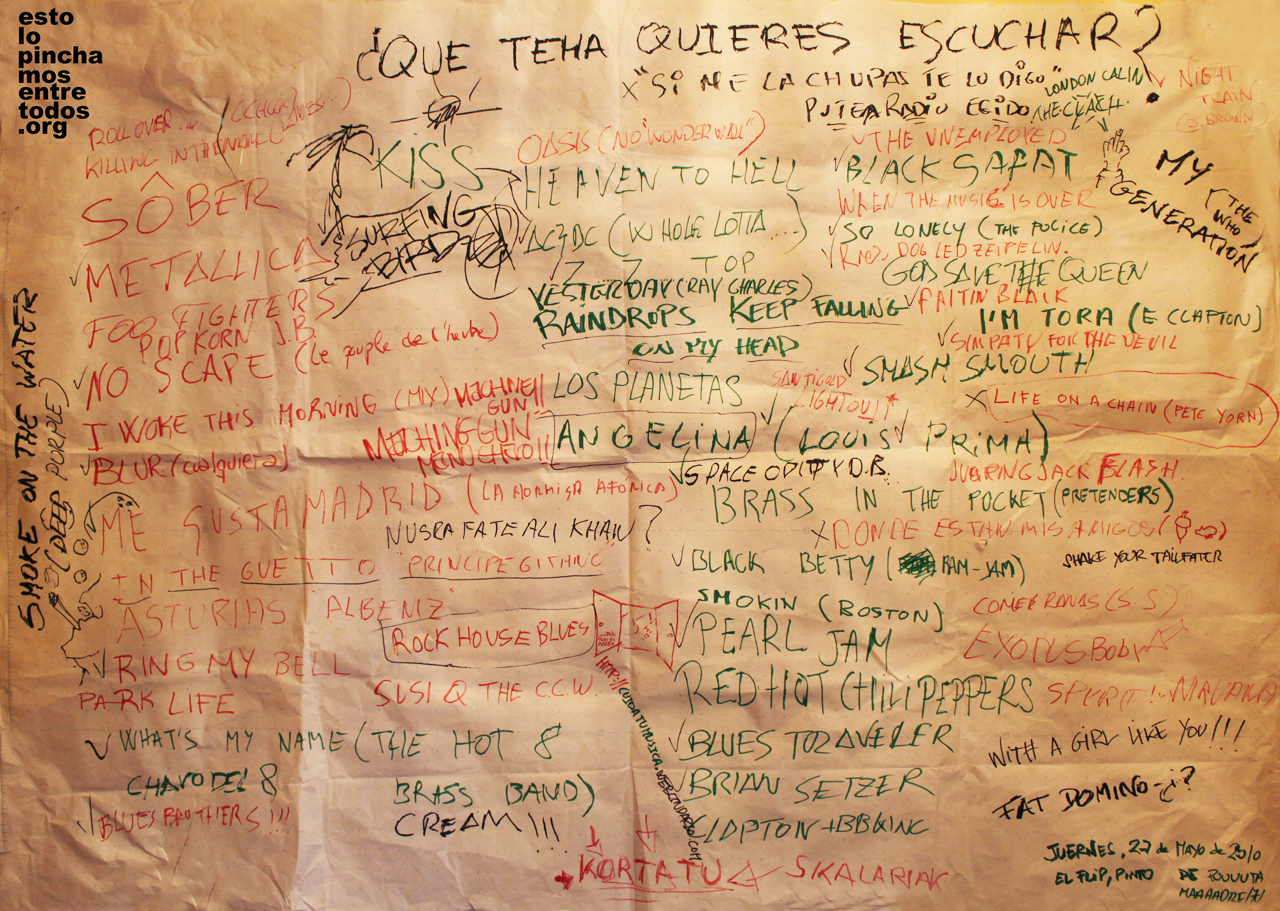 esto
lo
pincha
mos
entre
todos
.org
¿QUE TEHA QUIERES ESCUCHAR?
X "SI ME LA CHUPAS TE LO DIGO"
PUTEARADIO EGIDO
LONDON CALIN
THE CLASH.
NIGHT
TRAIN
(J. BROWN)
ROLL OVER...
KILLING IN THE NAME
SÔBER
METALLICA
FOO FIGHTERS
POPKORN J.B.
NO SCAPE (Le peuple de l'herbe)
I WOKE THIS MORNING (MIX)
BLUR (cualquiera)
ME GUSTA MADRID (LA HORMIGA AFÓNICA)
NUSRA FATE ALI KHAN?
IN THE GUETTO "PRINCIPE GITANO"
ASTURIAS ALBENIZ"
ROCK HOUSE BLUES
RING MY BELL
PARK LIFE
SUSI Q THE C.C.W.
WHAT'S MY NAME (THE HOT 8
BRASS BAND)
CHAVO DEL 8
BLUES BROTHERS!!!
CREAM!!!
SMOKE ON THE WATER
(DEEP PURPLE)
KISS
SURFING
BIRD
MACHINE
GUN!!
MACHING GUN
OASIS (NO "WONDERWALL")
HEAVEN TO HELL
AC/DC (WHOLE LOTTA....)
ZZ TOP
YESTERDAY (RAY CHARLES)
RAINDROPS KEEP FALLING
ON MY HEAD
LOS PLANETAS
SANTIGOLD
LIGHT OUT
ANGELINA (LOUIS PRIMA)
SPACE ODITY D.B.
BRASS IN THE POCKET (PRETENDERS)
X DONDE ESTAN MIS AMIGOS
BLACK BETTY (RAM-JAM)
SHAKE YOUR TAILFATER
SMOKIN (BOSTON)
PEARL JAM
RED HOT CHILI PEPPERS
BLUES TRAVELER
BRIAN SETZER
CLAPTON + BB KING
KORTATU
SKALARIAK
THE UNEMPLOYED
BLACK SABAT
WHEN THE MUSIC IS OVER
SO LONELY (THE POLICE)
DOG LED ZEIPELIN.
GOD SAVE THE QUEEN
PAITIN BLACK
I'M TORA (E CLAPTON)
SIMPATY FOR THE DEVIL
SMASH SMOUTH
X LIFE ON A CHAIN (PETE YORN)
JUMPING JACK FLASH.
MY
GENERATION
(THE
WHO)
COMERRANAS (S.S)
EXODUS Bob
SPIRIT NIRVANA
WITH A GIRL LIKE YOU!!!
FAT DOMINO-¿?
JUERNES, 27 de MAYO de 2010
EL FLIP, PINTO DE PUUUUTA
MAAAADRE